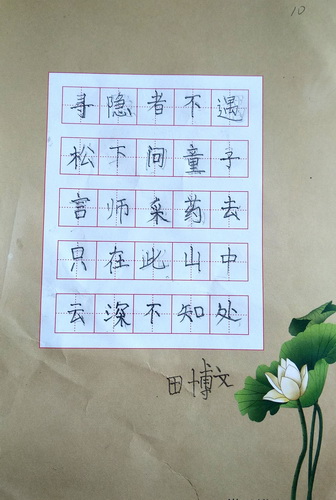 10
寻隐者不遇
松下问童子
言师采药去
只在此山中
云深不知处
田博文